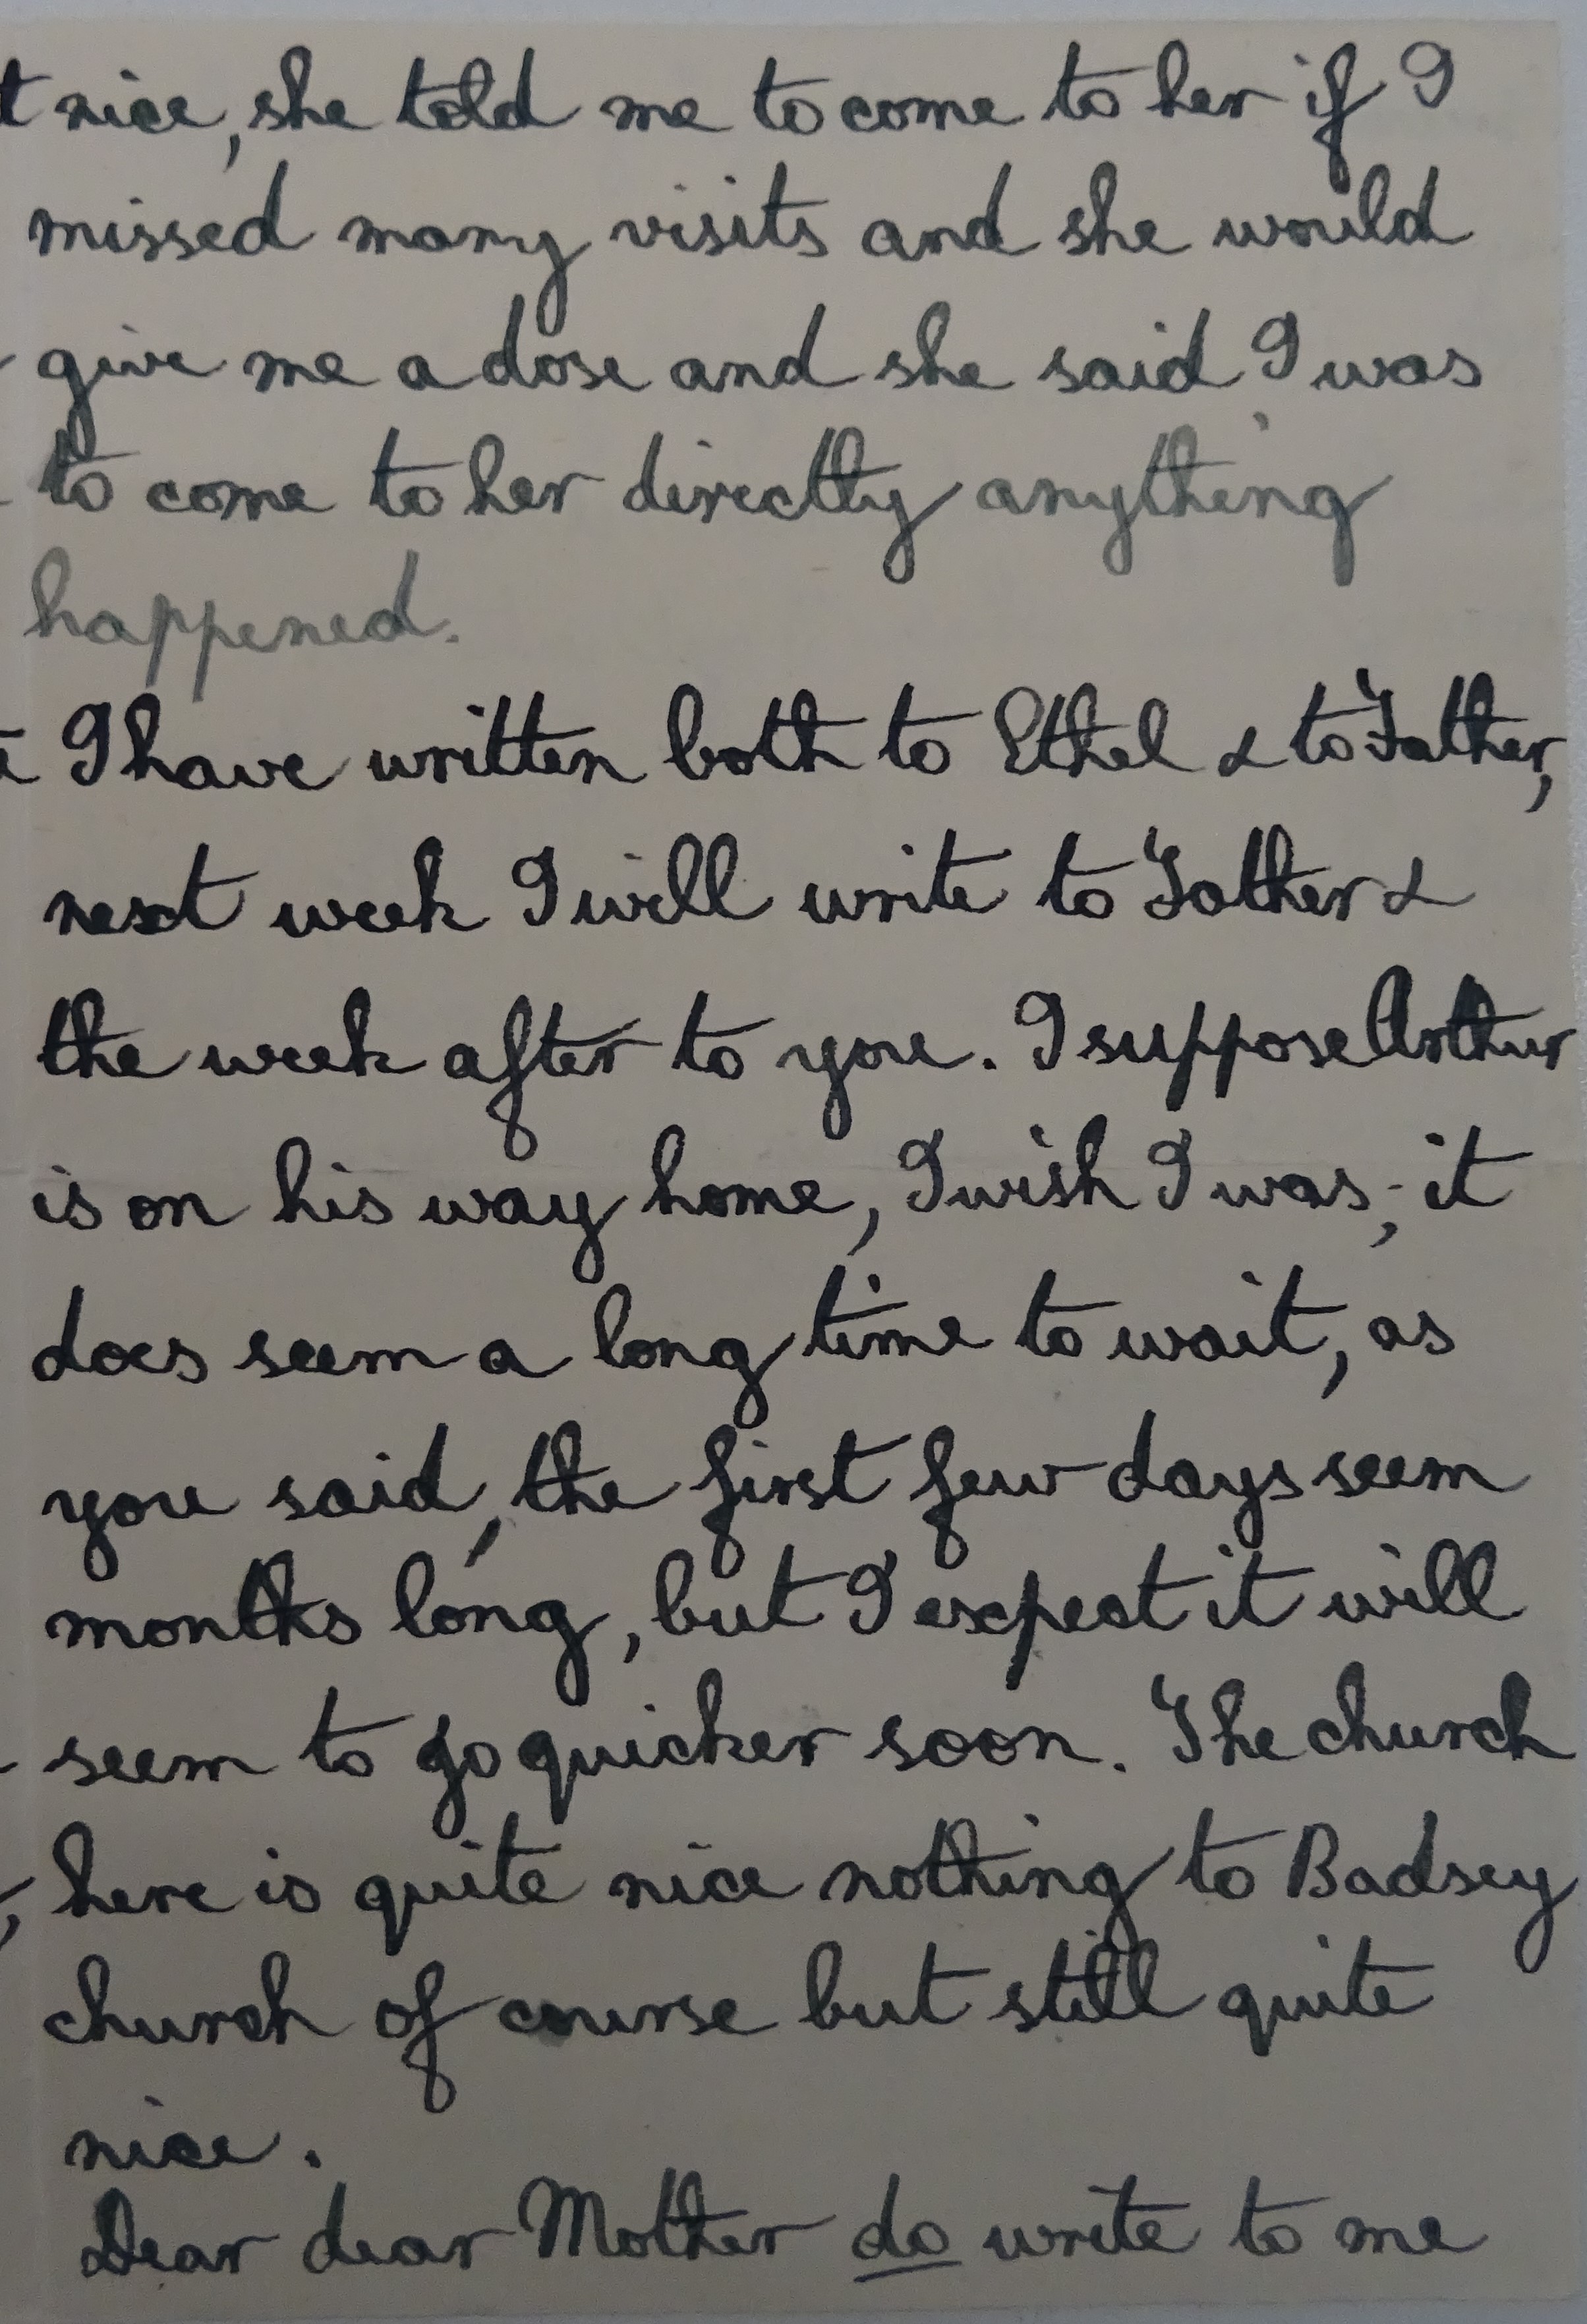 t nice, she told me to come to her if I
missed many visits and she would
give me a dose and she said I was
to come to her directly anything
happened.
I have written both to Ethel & to Father,
next week I will write to Father &
the week after to you. I suppose Arthur
is on his way home, I wish I was; it
does seem a long time to wait, as
you said, the first few days seem
months long, but I expect it will
seem to go quicker soon. The church
here is quite nice nothing to Badsey
church of course but still quite
nice.
Dear dear Mother do write to me